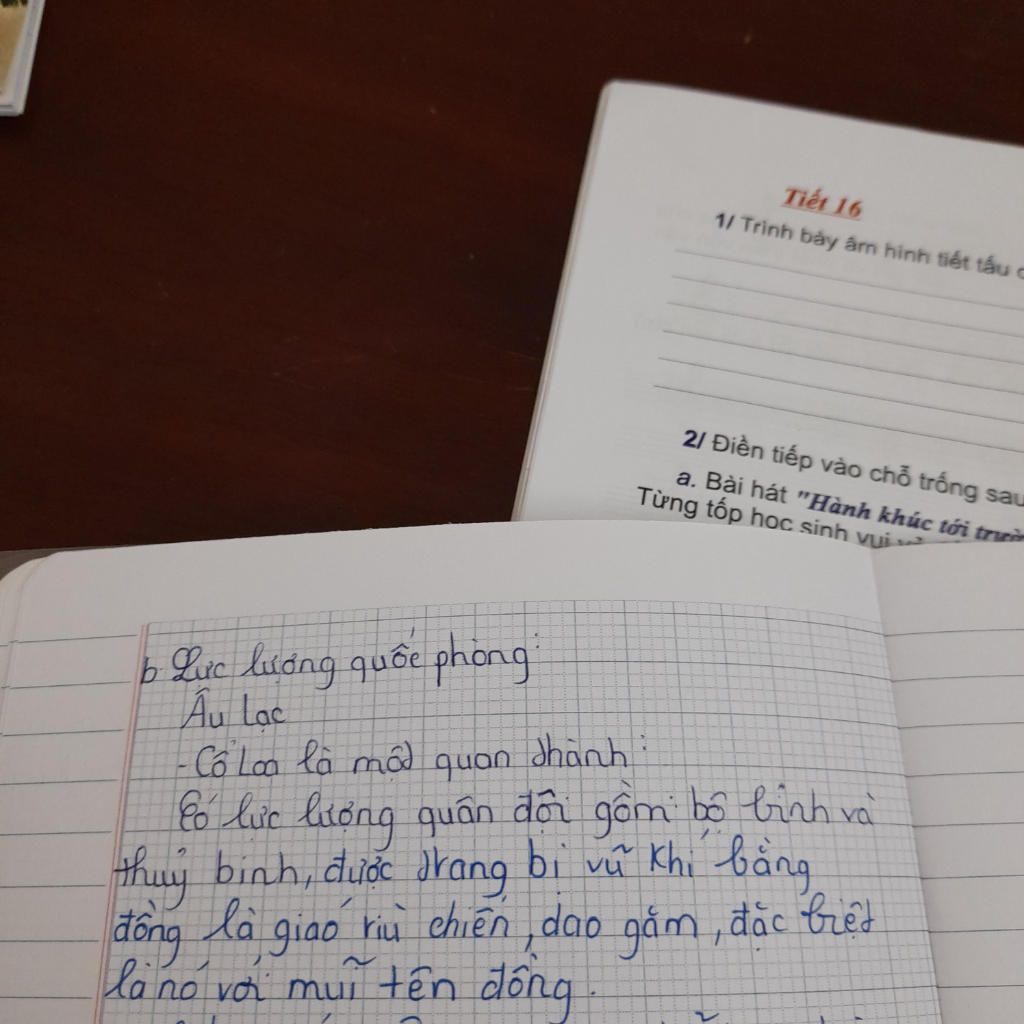 Tiết 16
1/ Trình bày âm hình tiết tấu
2/ Điền tiếp vào chỗ trống sau
a. Bài hát "Hành khúc tới trườ
Từng tốp học sinh vui vẻ
b. Lực lượng quốc phòng:
Âu Lạc
- Cổ Loa là một quan thành:
Có lực lượng quân đội gồm: bộ binh và
thuỷ binh, được trang bị vũ khí bằng
đồng là giáo rìu chiến, dao găm, đặc biệt
là nó với mũi tên đồng.